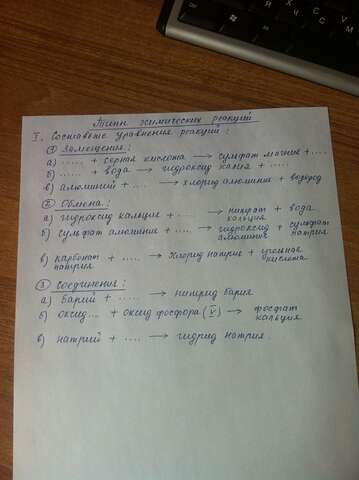 Типы химических реакций
I. Составьте уравнения реакций:
① Замещения:
а) ...... + серная кислота → сульфат магния + ....
б) ...... + вода → гидроксид калия + .....
в) алюминий + .... → хлорид алюминия + водород
② Обмена:
а) гидроксид кальция + .... → нитрат кальция + вода
б) сульфат алюминия + .... → гидроксид алюминия + сульфат натрия
в) карбонат натрия + .... → хлорид натрия + угольная кислота
③ Соединения:
а) барий + ..... → нитрид бария
б) оксид... + оксид фосфора (V) → фосфат кальция
в) натрий + .... → гидрид натрия.